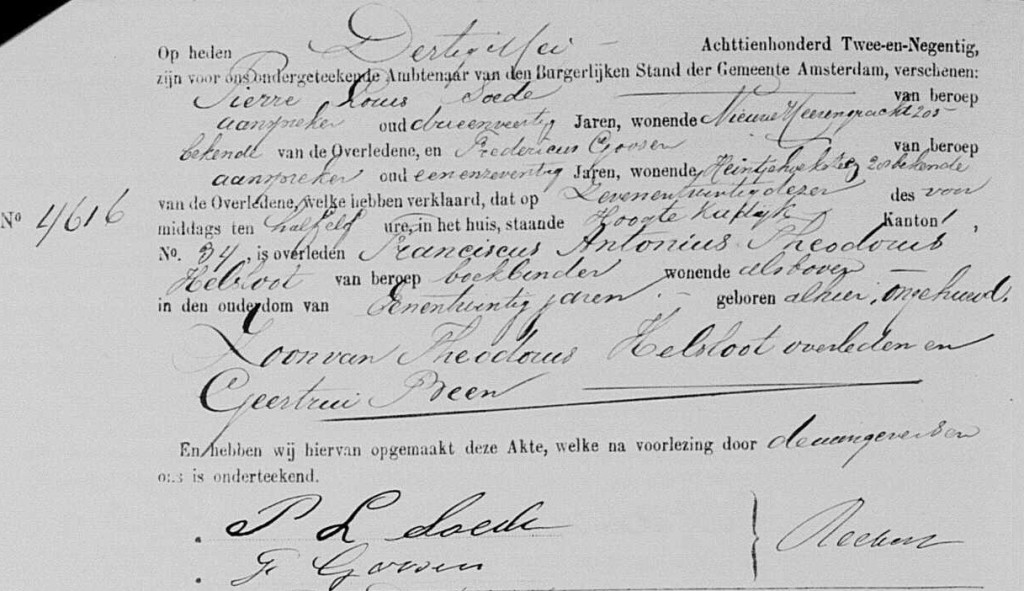 Op heden Dertig Mei – Achttienhonderd Twee-en-Negentig,
zijn voor ons ondergeteekende Ambtenaar van den Burgerlijken Stand der Gemeente Amsterdam, verschenen:
Pierre Louis Soede van beroep
aanspreker oud drieenveertig Jaren, wonende Nieuwe Heerengracht 205
bekende van de Overledene, en Fredericus Goosen van beroep
aanspreker oud eenenzeventig Jaren, wonende 20 bekende
van de Overledene, welke hebben verklaard, dat op Zevenentwintig dezer des voor
Nº 4616
middags ten half elf ure, in het huis, staande Hoogte Kadijk Kanton ,
No. 34, is overleden Franciscus Antonius Theodorus
Helsloot van beroep boekbinder wonende als boven
in den ouderdom van Eenentwintig jaren – geboren alhier, ongehuwd.
Zoon van Theodorus Helsloot overleden en
Geertrui Been
En hebben wij hiervan opgemaakt deze Akte, welke na voorlezing door de aangevers en
ons is onderteekend.
P L Soede
F Goosen